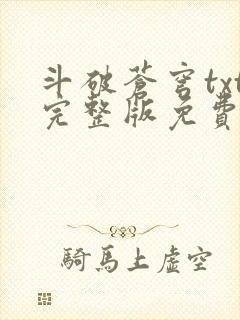 斗破蒼穹txt
完整版免費
騎馬上虛空